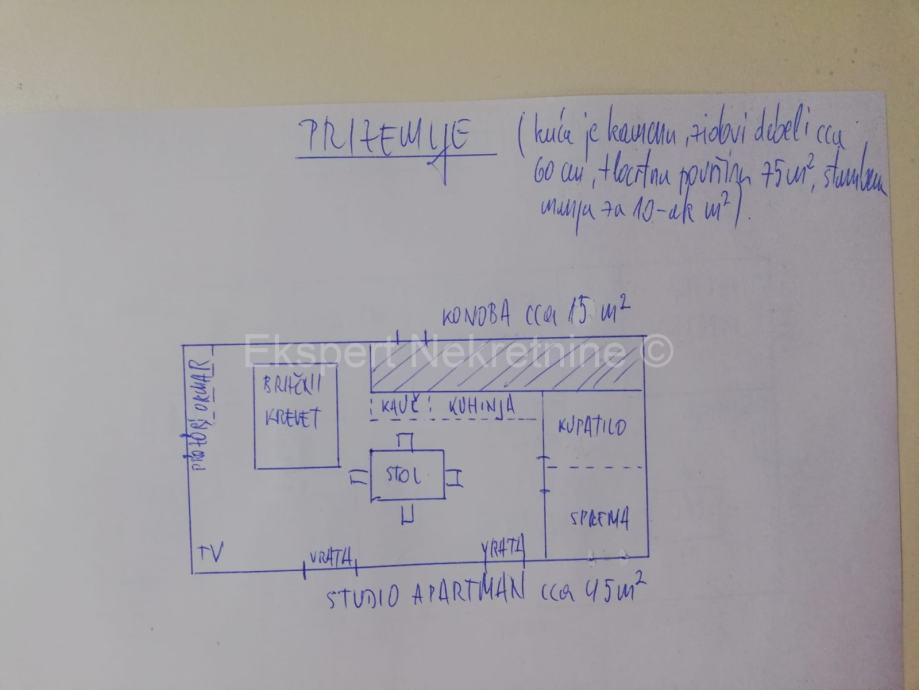 PRIZEMLJE
(kuća je kamena, zidovi debeli cca
60 cm, tlocrtna površina 75 m², stambena
manja za 10-ak m²).
KONOBA cca 15 m²
Ekspert Nekretnine ©
PROZOR/ ORMAR
BRAČNI
KREVET
KAUČ
KUHINJA
KUPATILO
STOL
SPREMA
TV
VRATA
VRATA
STUDIO APARTMAN cca 45 m²